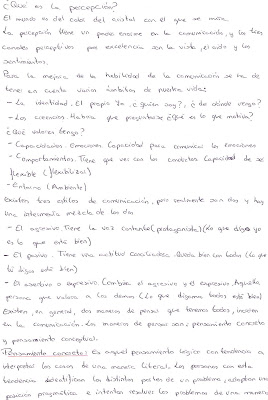 ¿Qué es la percepción?
El mundo es del color del cristal con el que se mira.
La percepción tiene un poder enorme en la comunicación, y los tres
canales perceptivos por excelencia son la vista, el oído y los
sentimientos.
Para la mejora de la habilidad de la comunicación se ha de
tener en cuenta varios ámbitos de nuestra vida:
- La identidad. El propio Yo, ¿quién soy?, ¿de dónde vengo?
- Las creencias. Habría que preguntarse ¿Qué es lo que motiva?
¿Qué valores tengo?
- Capacidades. Emociones. Capacidad para comunicar las emociones
- Comportamientos. Tiene que ver con las conductas. Capacidad de ser
flexible (flexibilizar)
- Entorno (Ambiente)
Existen tres estilos de comunicación, pero realmente son dos y hay
una intermedia mezcla de los dos
- El agresivo. Tiene la voz cantante (protagonista) (Lo que digo yo
es lo que está bien)
- El pasivo. Tiene una actitud conciliadora. Queda bien con todos (Lo que
tú digas está bien)
- El asertivo o expresivo. Combina el agresivo y el expresivo. Aquella
persona que valora a los demás (Lo que digamos todos está bien)
Existen, en general, dos maneras de pensar que tenemos todos, inciden
en la comunicación. Las maneras de pensar son: pensamiento concreto
y pensamiento conceptual.
Pensamiento concreto: Es aquel pensamiento lógico con tendencia a
interpretar las cosas de una manera literal. Las personas con esta
tendencia identifican las distintas partes de un problema, adoptan una
posición pragmática e intentan resolver los problemas de una manera